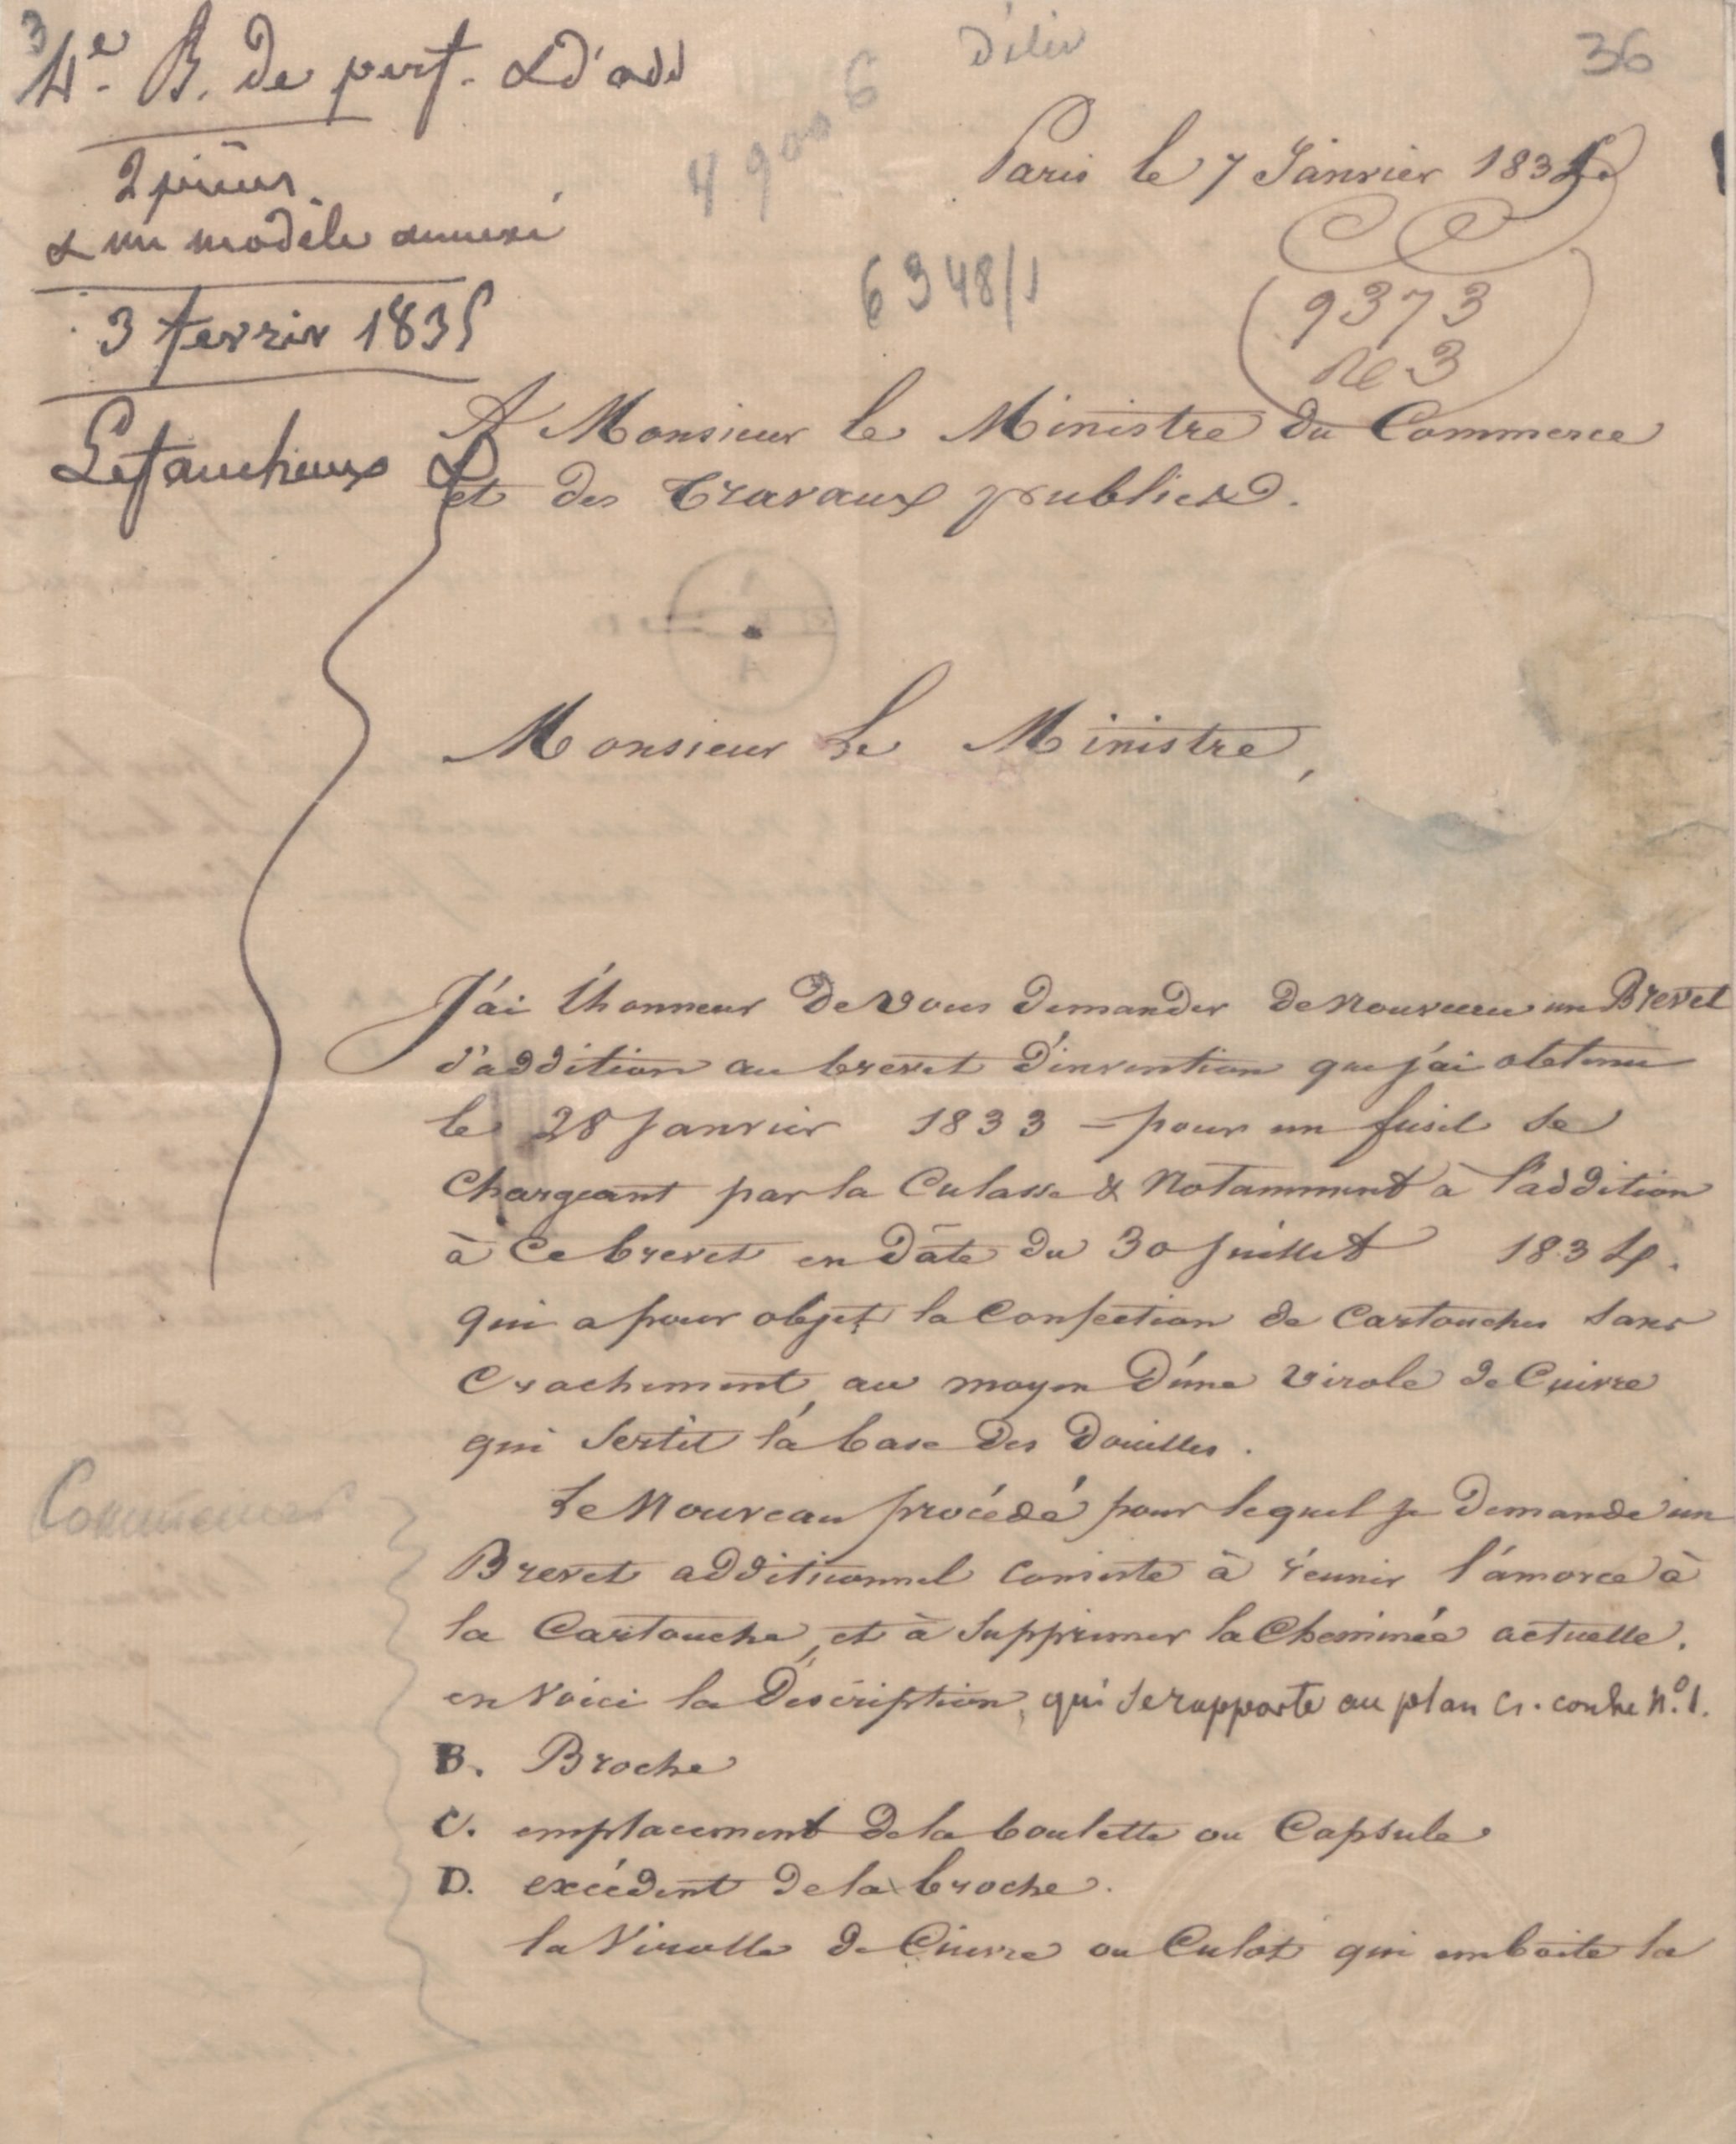 3
4e. B. de perf. & d'add
2 pièces
& un modèle annexé
3 fevrier 1835
Lefaucheux
36
Paris le 7 Janvier 1835
6948/1
9373
ne 3
A Monsieur le Ministre du Commerce
et des travaux publics.
Monsieur Le Ministre,
J'ai l'honneur de vous demander de Nouveau un Brevet
d'addition au brevet d'invention que j'ai obtenu
le 28 Janvier 1833 - pour un fusil se
Chargeant par la Culasse & Notamment à l'addition
à Ce brevet en Date du 30 Juillet 1834.
qui a pour objet la Confection de Cartouches sans
Crachement, au moyen d'une Virole de Cuivre
qui Sertit la base des Douilles.
Le Nouveau procédé pour lequel je demande un
Brevet additionnel consiste à réunir l'amorce à
la Cartouche, et à Supprimer la Cheminée actuelle.
en Voici la Description, qui se rapporte au plan ci-contre N.º 1.
B. Broche
C. emplacement de la boulette ou Capsule
D. excédent de la broche.
la Virolle de Cuivre ou Culot qui emboite la